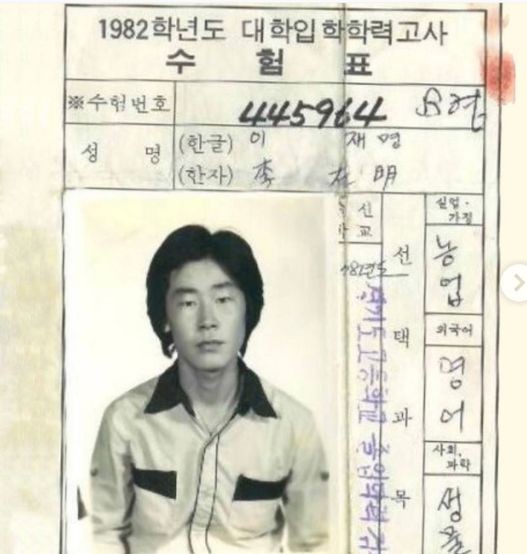 1982학년도 대학입학학력고사
수 험 표
※수험번호 445964 B형
성 명 (한글) 이 재 명
(한자) 李 在 明
선 택 과 목
실업·가정
농업
외국어
영어
사회, 과학